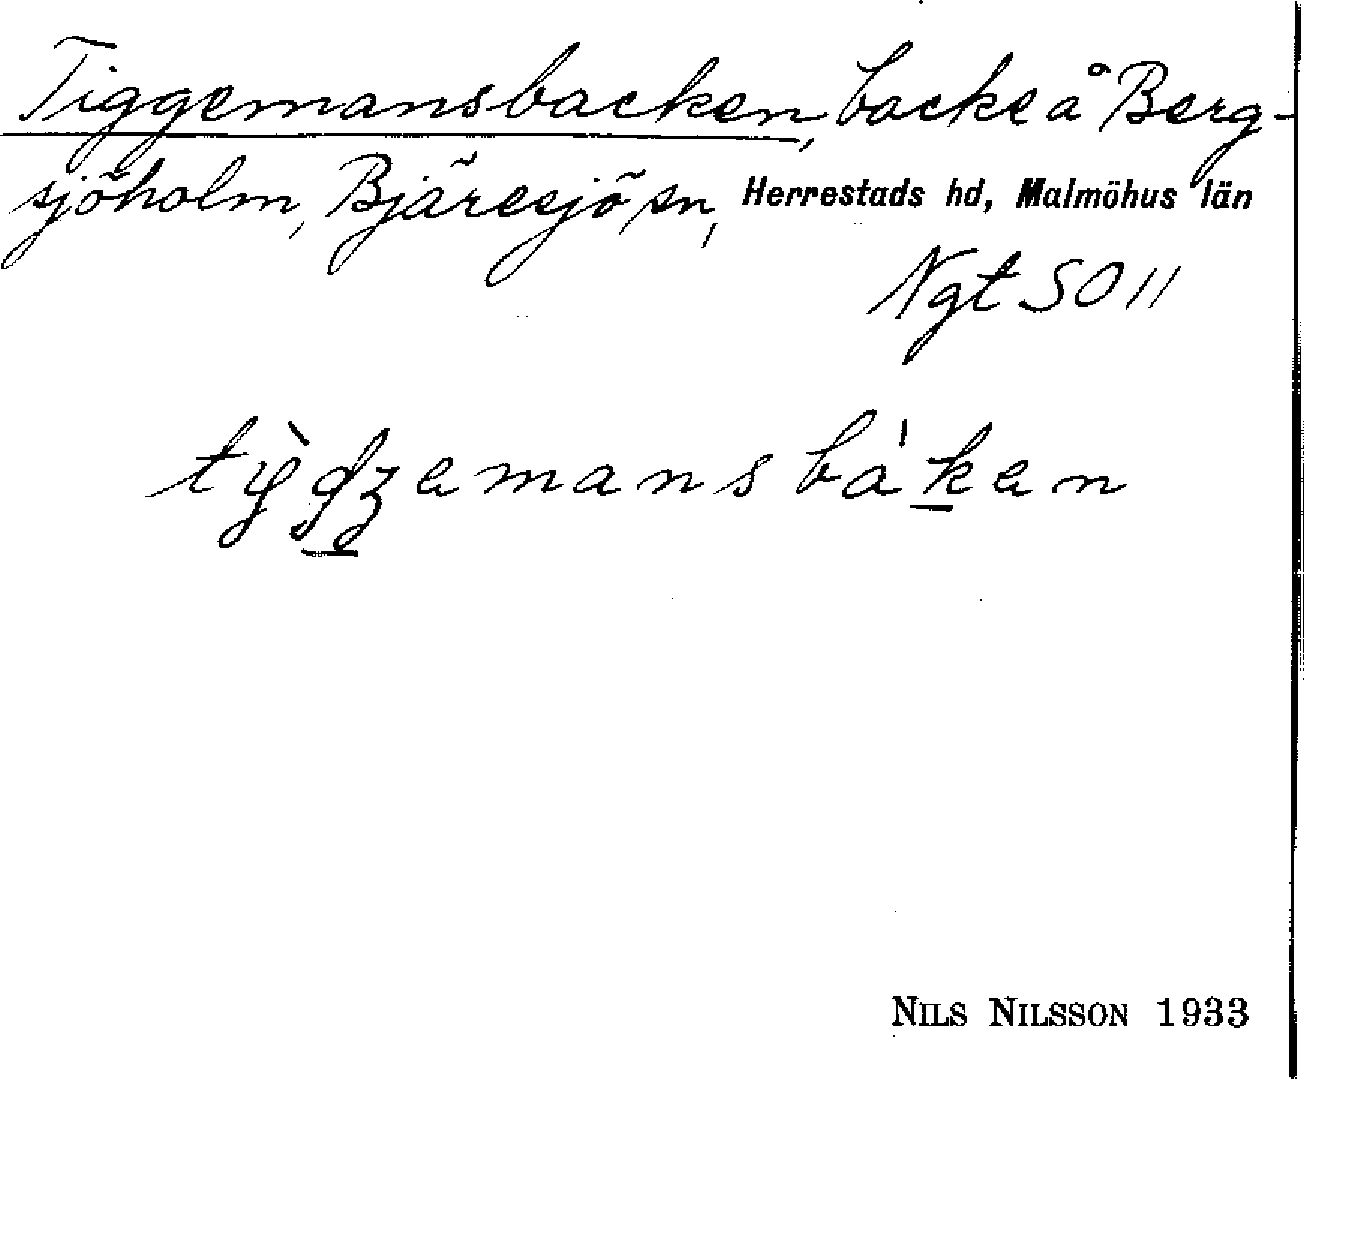 Tiggemansbacken, backe å Berg-
sjöholm, Bjäresjö sn, Herrestads hd, Malmöhus län
Ngt SO //
tỳdʒemansbáken
NILS NILSSON 1933